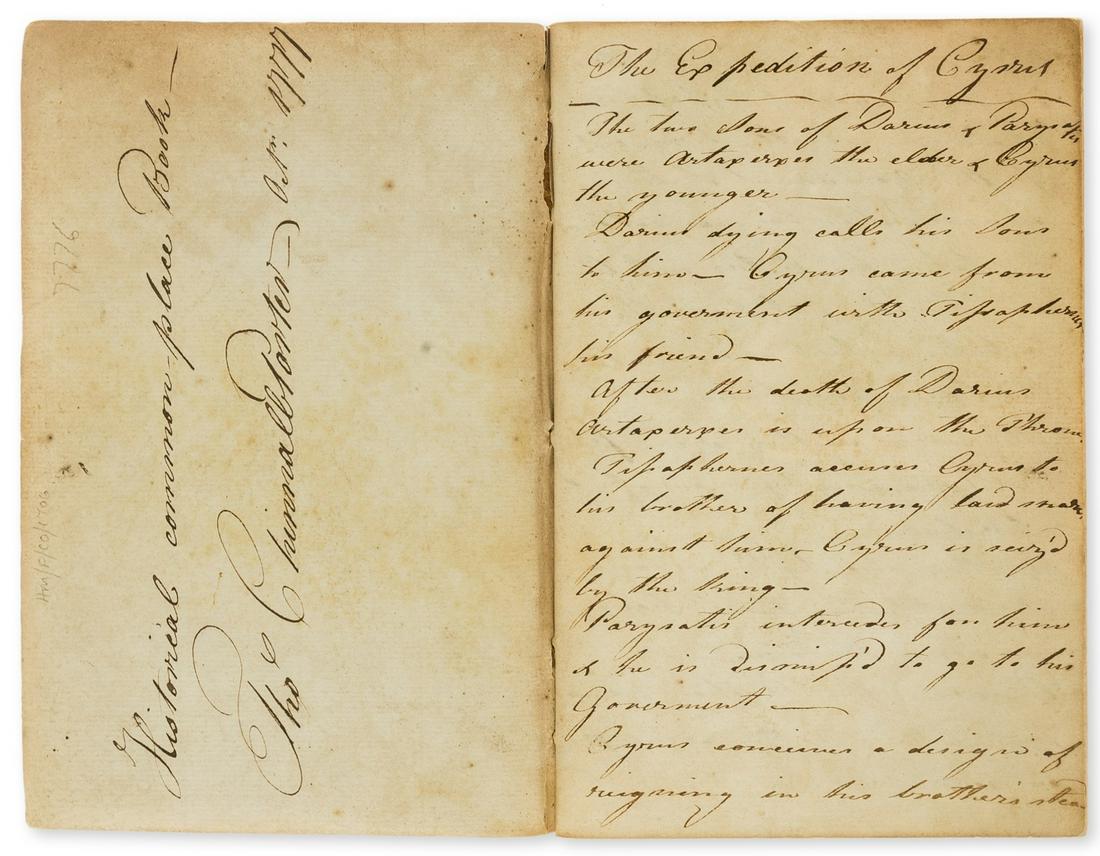 Historical common-place Book —
Thos Chinnall Porter —
7776
HM/F/CO/1706
The Expedition of Cyrus
The two Sons of Darius & Parysatis
were Artaxerxes the elder & Cyrus
the younger —
Darius dying calls his Sons
to him — Cyrus came from
his goverment with Tissaphernes
his friend —
After the death of Darius
Artaxerxes is upon the Throne.
Tissaphernes accuses Cyrus to
his brother of having laid
against him — Cyrus is seiz'd
by the King —
Parysatis intercedes for him
& he is dismiss'd to go to his
Goverment —
Cyrus conceives a design of
reigning in his brother's stea